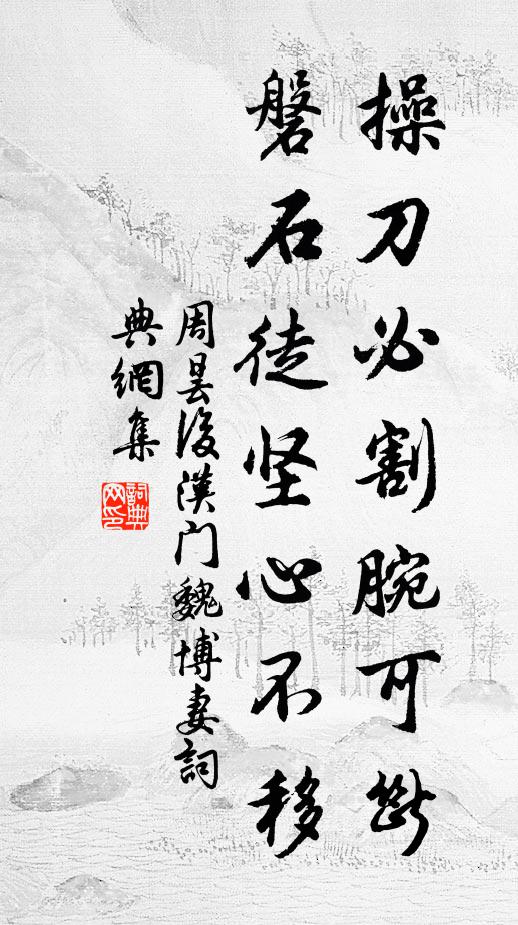 操刀必割腕可断
磐石徒坚心不移
周昙后漢门魏博妻詞
典網集
詞典
网印